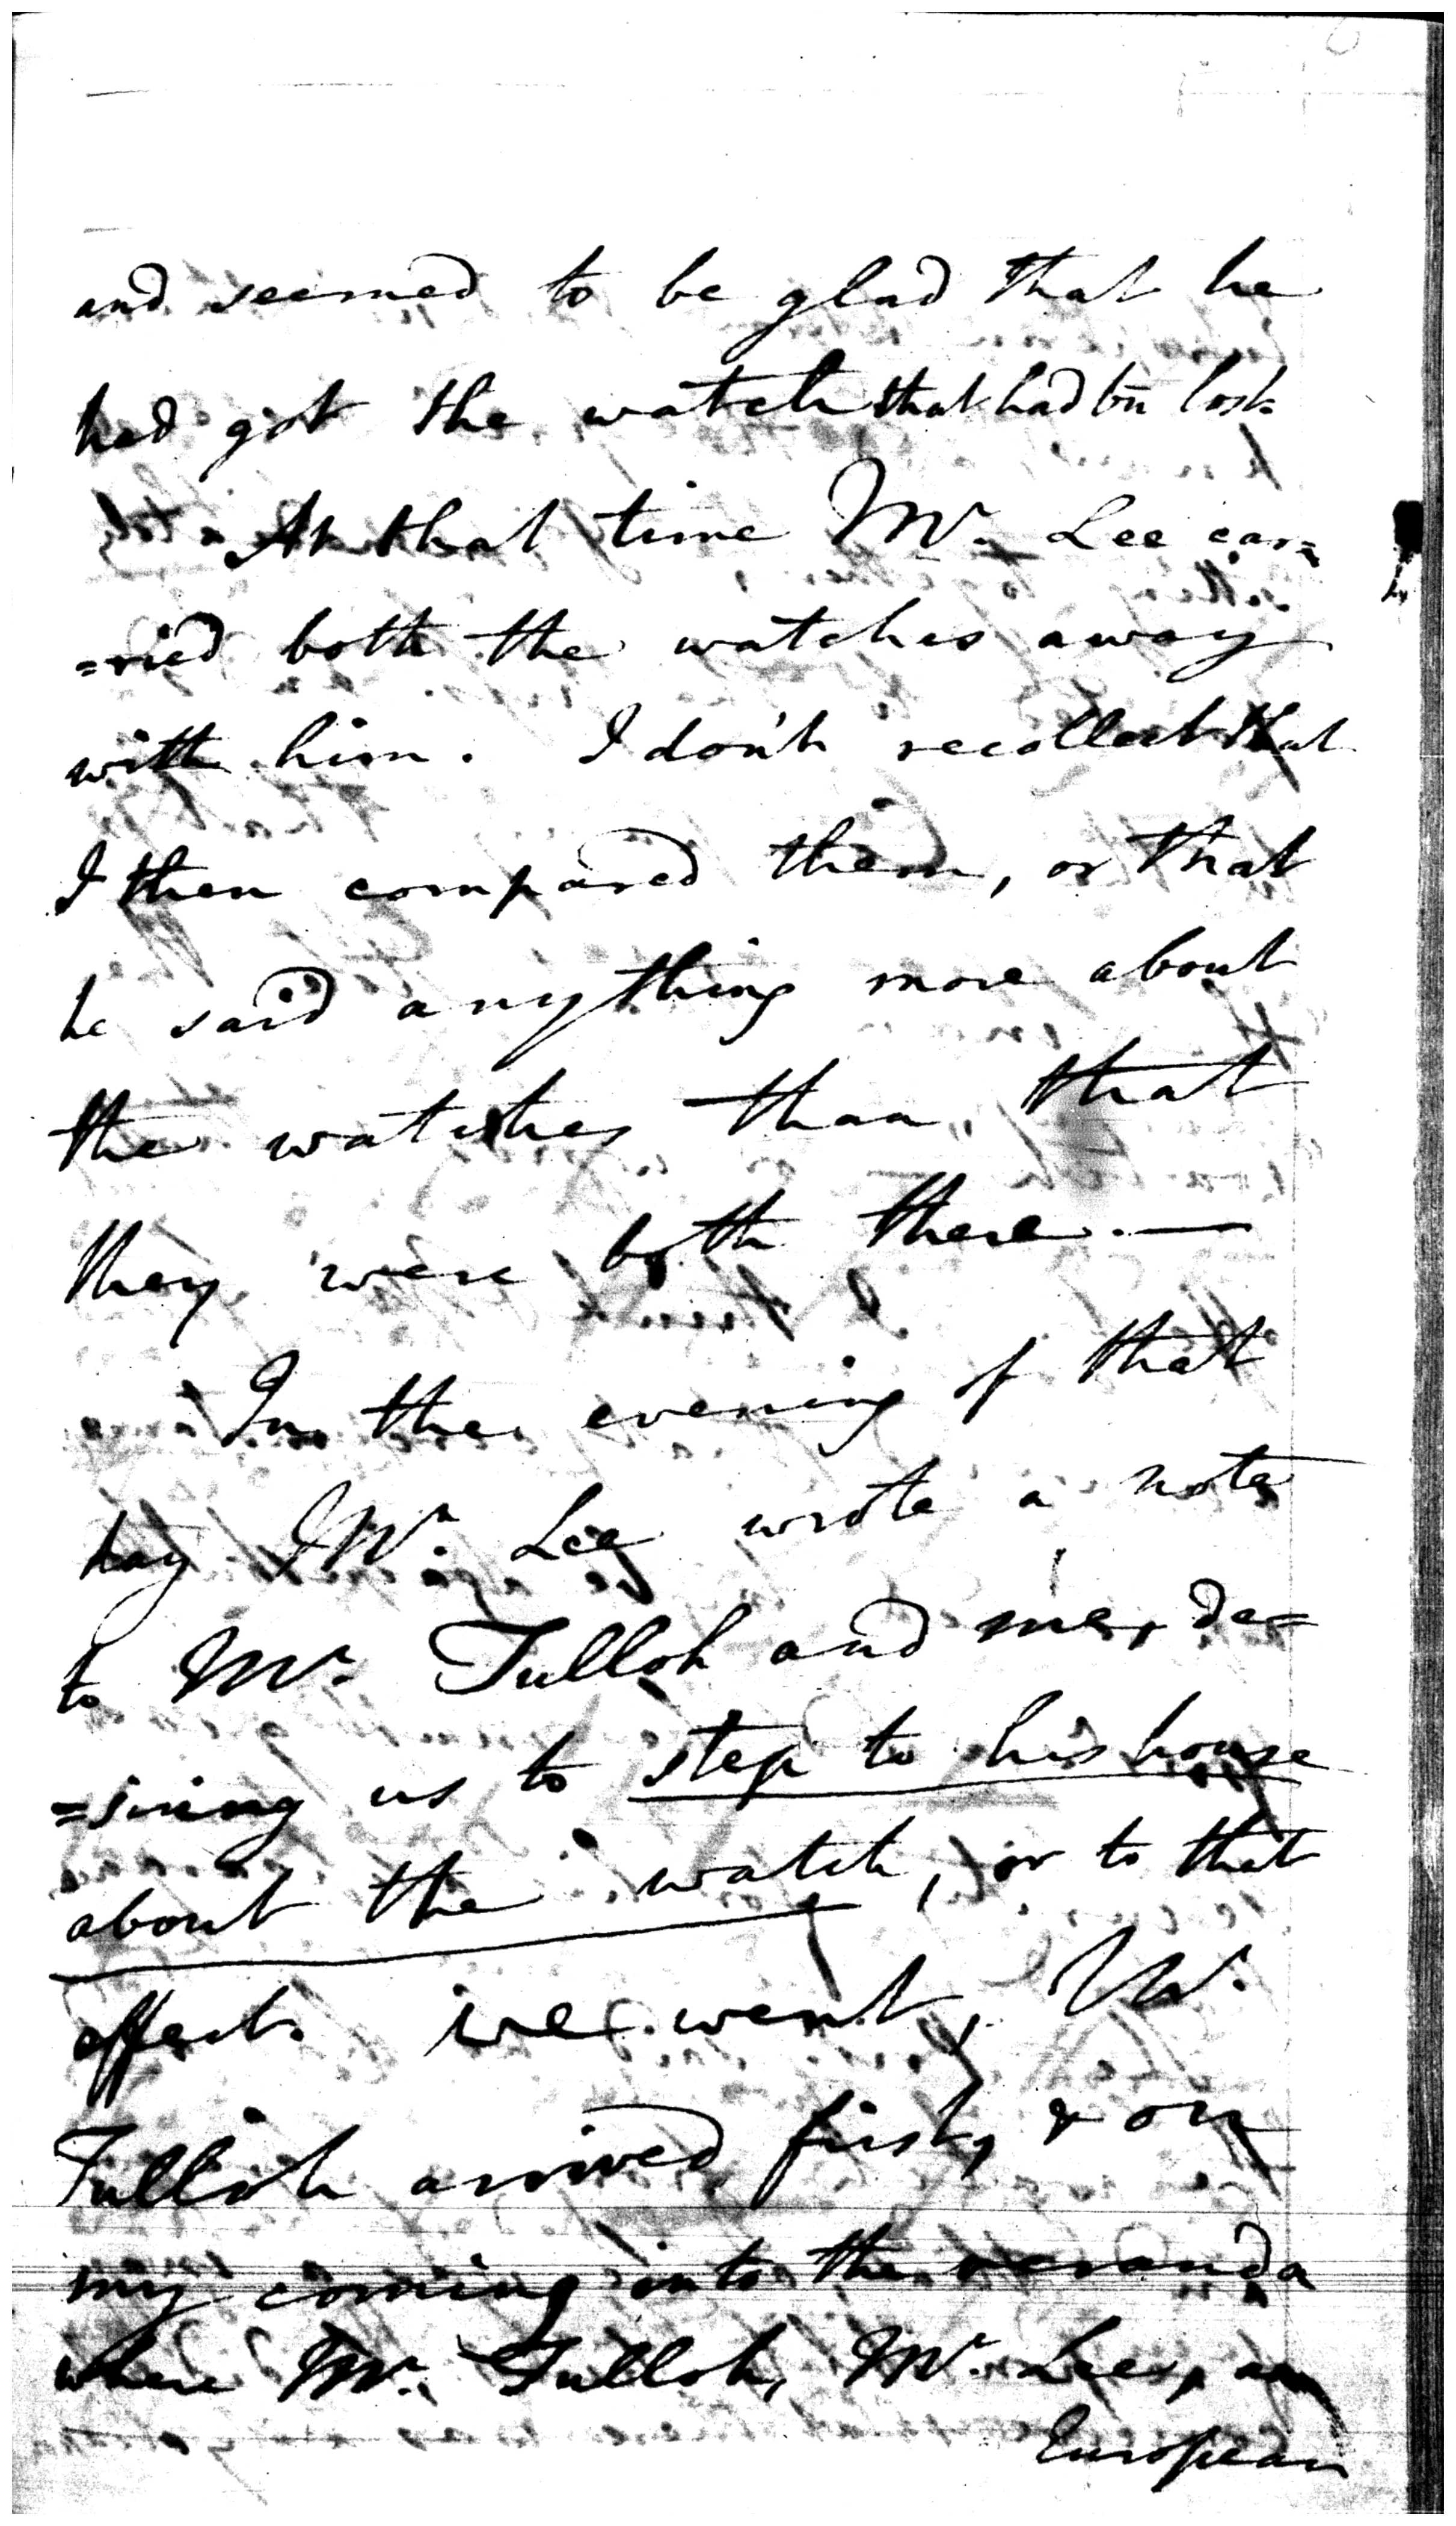 and seemed to be glad that he
had got the watch that had bn lost
At that time Mr. Lee car=
=ried both the watches away
with him. I don't recollect that
I then compared them, or that
he said any thing more about
the watches than, that
they were both there. —
In the evening of that
day Mr. Lee wrote a note
to Mr. Tulloh and me, de=
=siring us to step to his house
about the watch, or to that
effect. we went, Mr.
Tulloh arrived first, & on
my coming into the veranda
where Mr. Tulloh, Mr. Lee, an
European